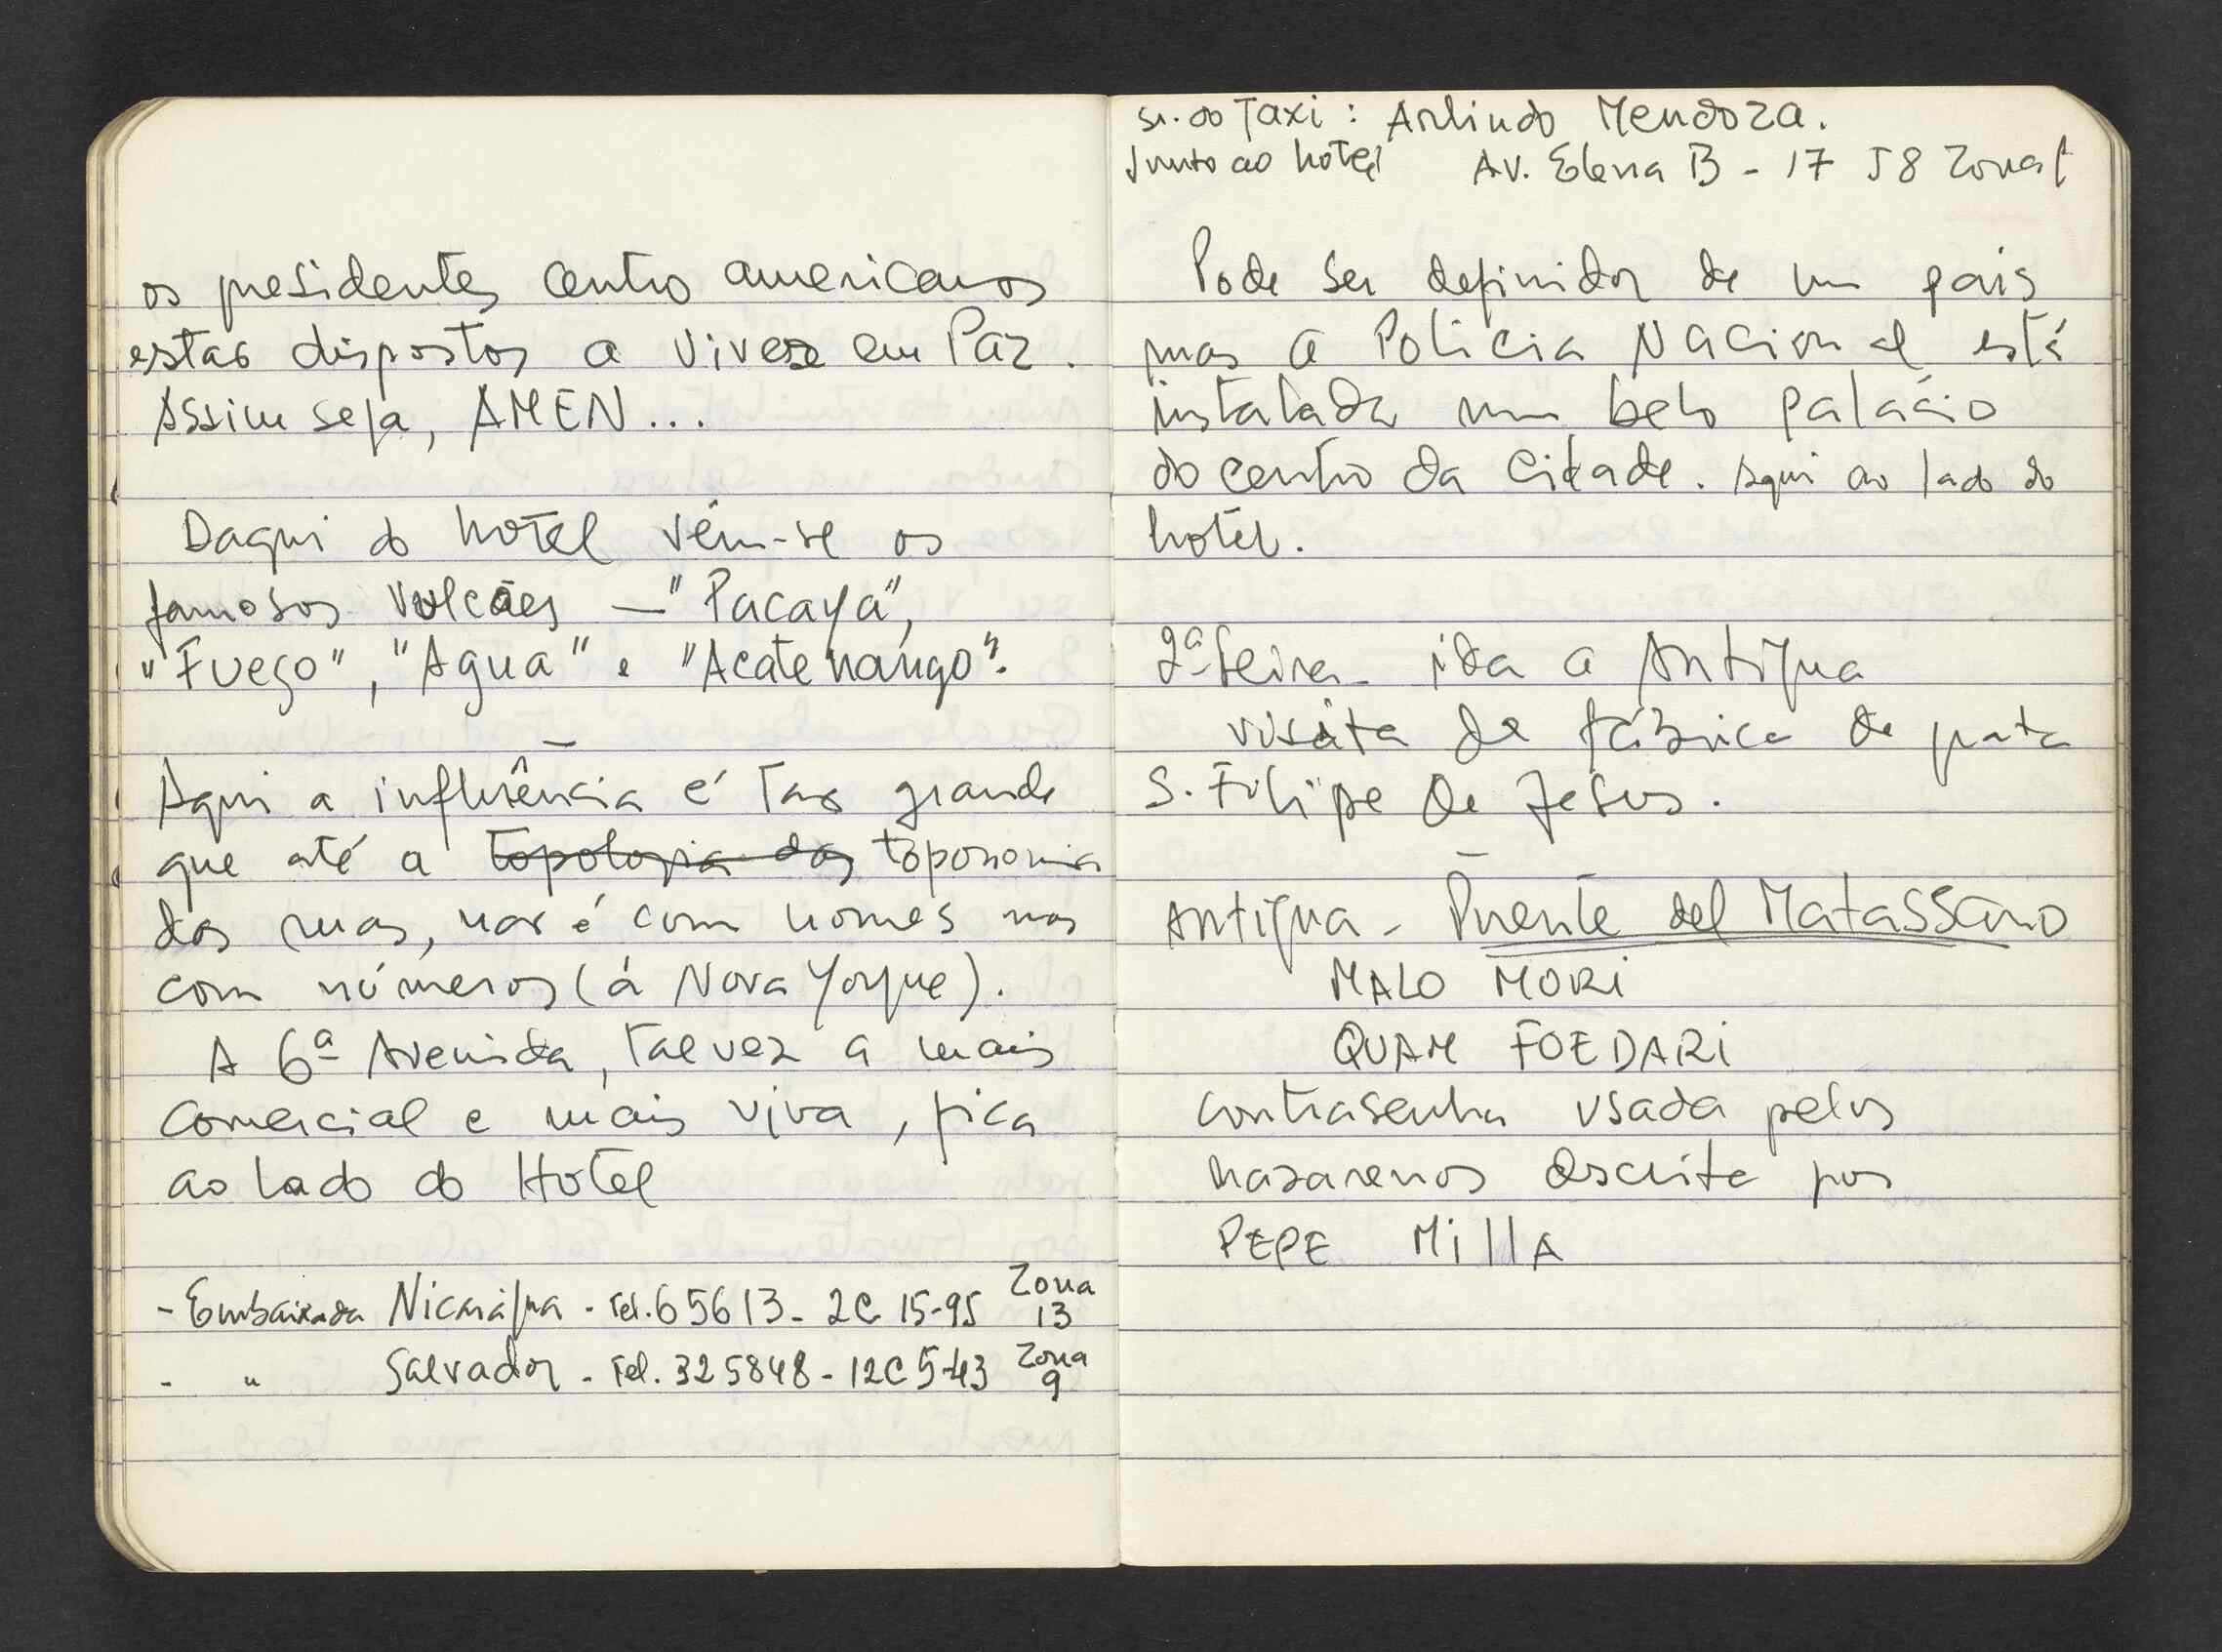 os presidentes centro americanos
estão dispostos a viver em Paz.
Assim seja, AMEN...
Daqui do hotel vêm-se os
famosos vulcões — "Pacaya",
"Fuego", "Agua" e "Acatenango".
—
Aqui a influência é tão grande
que até a topologia das toponomia
das ruas, não é com nomes mas
com números (à Nova Yorque).
A 6ª Avenida, talvez a mais
comercial e mais viva, fica
ao lado do Hotel
- Embaixada Nicarágua - Tel. 65613 - 2C 15-95 Zona 13
- " Salvador - Tel. 325848 - 12C 5-43 Zona 9
Sr. do Taxi: Arlindo Mendoza.
Junto ao hotel Av. Elena B - 17 58 Zona
Pode ser definidor de um país
mas a Policia Nacional está
instalada num belo palácio
do centro da cidade. Aqui ao lado do
hotel.
2ª-feira - ida a Antigua
visita da fábrica de prata
S. Filipe de Jesus.
—
Antigua - Puente del Matassano
MALO MORI
QUAM FOEDARI
contrasenha usada pelos
nazarenos descrita por
PEPE MillA